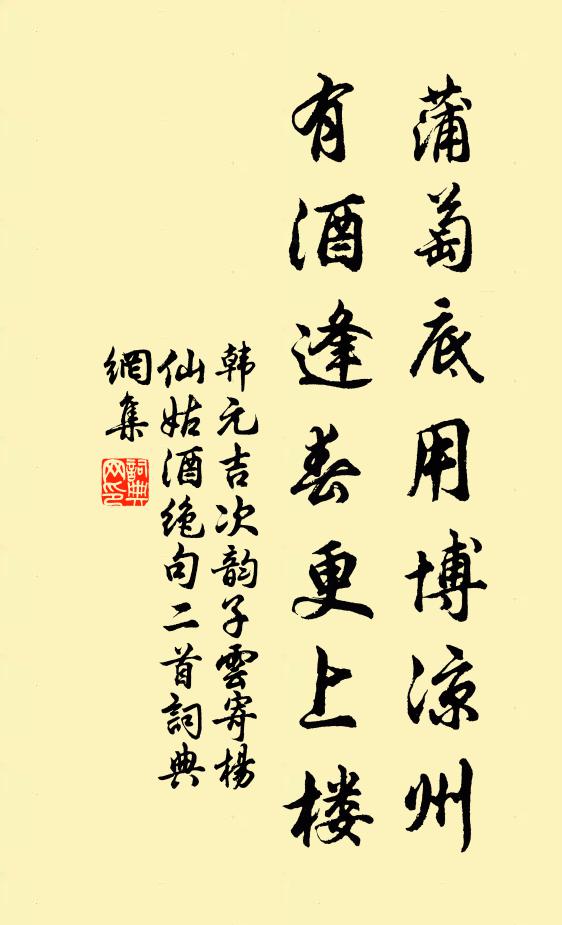 蒲萄底用博凉州
有酒逢春更上楼
韩元吉次韵子雲寄楊
仙姑酒绝句二首詞典
網集
詞典
网印